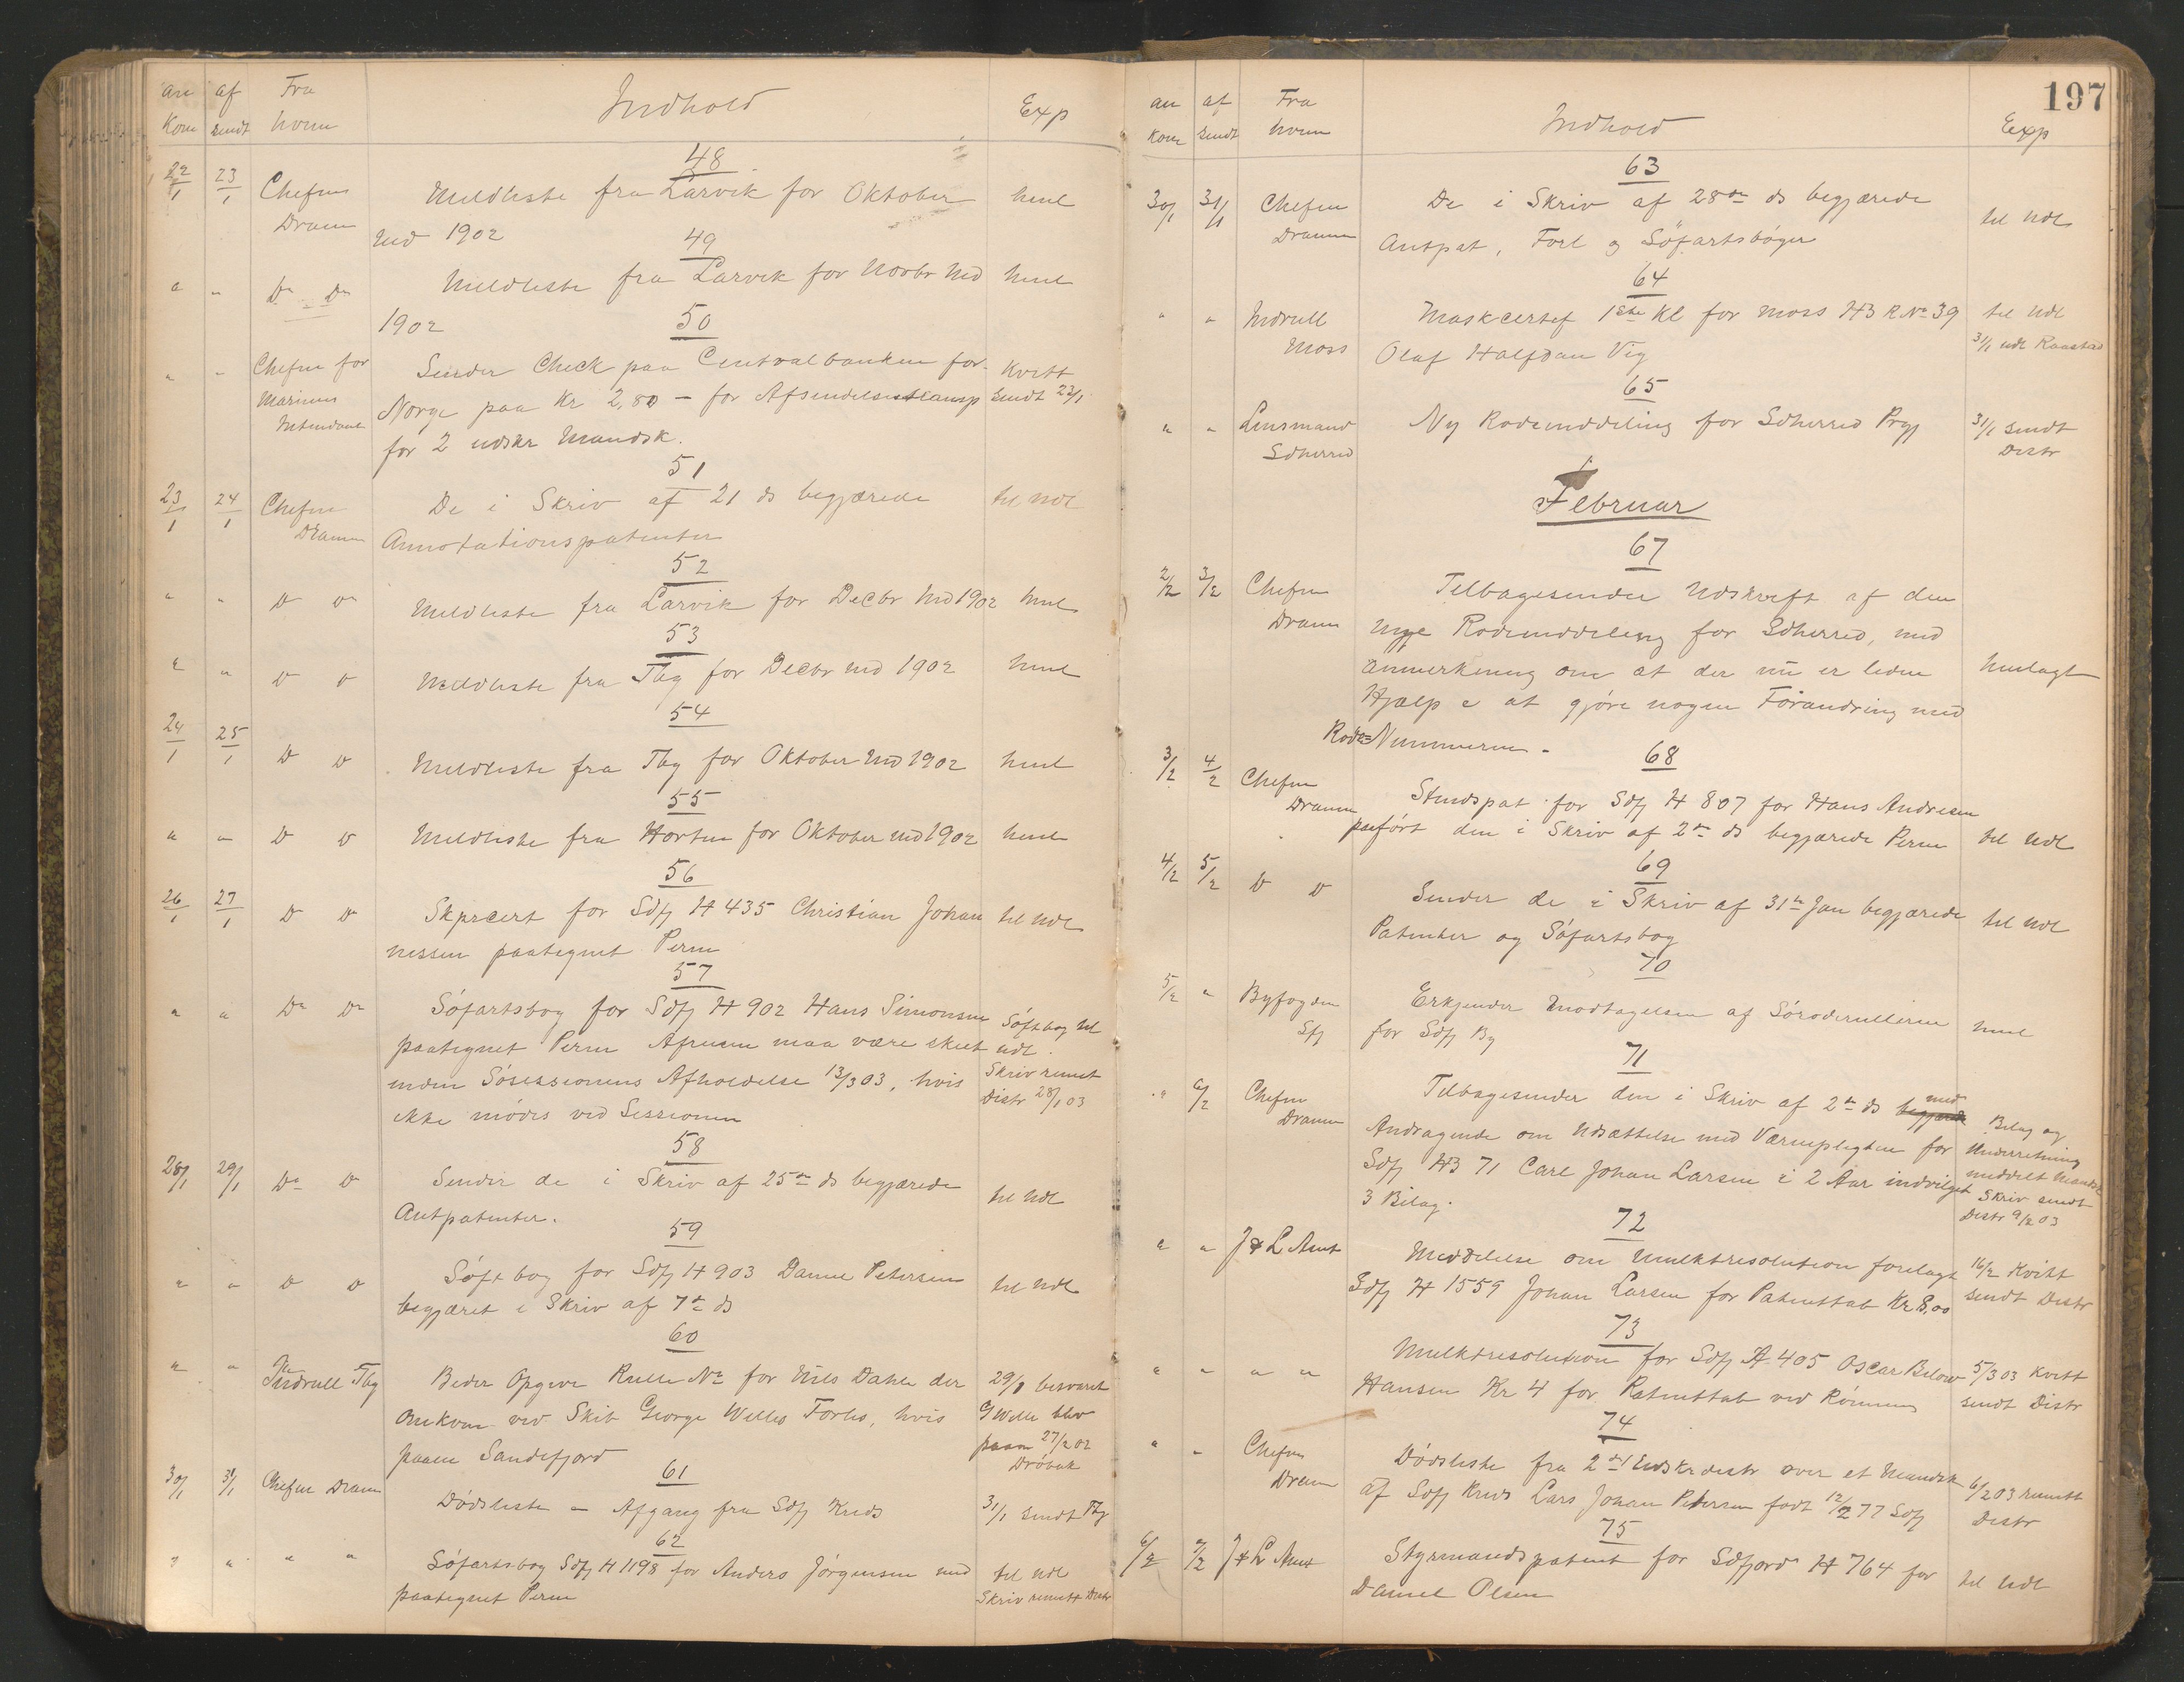 an af Fra Indhold Exp
kom sendt hvem
48
22/1 23/1 Chefen Meldliste fra Larvik for Oktober henl
Dram Md 1902
49
" " Do Do Meldliste fra Larvik for Novbr Md henl
1902
50
" " Chefen for Sender Check paa Centralbanken for Kvitt
Marinens Norge paa Kr 2,80 - for Afsendelsestransp sendt 23/1
Intendant for 2 udskr Mandsk.
51
23/1 24/1 Chefen De i Skriv af 21 ds begjærede til Udl
Dramm Annotationspatenter
52
" " Do Do Meldliste fra Larvik for Decbr Md 1902 henl
53
" " Do Do Meldliste fra Tbg for Decbr Md 1902 henl
54
24/1 25/1 Do Do Meldliste fra Tbg for Oktober Md 1902 henl
55
" " Do Do Meldliste fra Horten for Oktober Md 1902 henl
56
26/1 27/1 Do Do Skprcert for Sdfj H 435 Christian Johan til Udl
nessen paategnet Perm
57
" " Do Do Søfartsbog for Sdfj H 902 Hans Simonsen Søftbog til
paategnet Perm Afreisen maa være skeet udl.
inden Søsessionens Afholdelse 13/3 03, hvis Skriv remit
ikke mødes ved Sessionen Distr 28/1 03
58
28/1 29/1 Do Do Sender de i Skriv af 25de ds begjærede til Udl
Antpatenter.
59
" " Do Do Søftbog for Sdfj H 903 Danne Petersen til Udl
begjæret i Skriv af 7de ds
60
" " Indrull Tbg Beder Opgive Rulle No for Nils Dahle der 29/1 besvaret
omkom ved Skib George Welles Forlis, hvis G Welle blev
paam Sandefjord paam 27/2 02
Drøbak
61
30/1 31/1 Chefen Dram Dødsliste - Afgang fra Sdfj Kreds 31/1 sendt Tbg
62
" " " " Søfartsbog Sdfj H 1198 for Anders Jørgensen med til Udl
paategnet Perm Skriv remitt Distr
197
an af Fra Indhold Exp
kom sendt hvem
63
30/1 31/1 Chefen De i Skriv af 28de ds begjærede til Udl
Dramm Antpat, Forl og Søfartsbøger
64
" " Indrull Maskcertif 1ste Kl for Moss HB R No 39 til Udl
Moss Olaf Halfdan Vig 31/1 udl Raastad
65
" " Lensmand Ny Rodeinddeling for Sdherred Prgj 31/1 sendt
Sdherred Distr
Februar
67
2/2 3/2 Chefen Tilbagesender Udskrift af den
Dramm nye Rodeinddeling for Sdherred, med
Anmerkning om at der nu er liden henlagt
Hjælp i at gjøre nogen Forandring med
Rode-Nummeren.
68
3/2 4/2 Chefen Stmdspat for Sdfj H 807 for Hans Andresen
Dramm paaført den i Skriv af 2de ds begjærede Perm til Udl
69
4/2 5/2 Do Do Sender de i Skriv af 31te Jan begjærede til Udl
Patenter og Søfartsbog
70
5/2 " Byfogden Erkjender Modtagelsen af Søroderullerne henl
Sfj for Sdfj By
71
" 6/2 Chefen Tilbagesender den i Skriv af 2de ds begjærede med Bilag og
Dramm Andragende om Udsættelse med Værnepligten for Underretning
Sdfj HB 71 Carl Johan Larsen i 2 Aar indvilget meddelt Mandsk
3 Bilag. Skriv sendt
Distr 9/2 03
72
" " J & L Amt Meddelelse om Mulktresolution forelagt 16/2 Kvitt
Sdfj H 1559 Johan Larsen for Patenttab Kr 8,00 sendt Distr
73
" " " " Mulktresolution for Sdfj A 405 Oscar Below 5/3 03 Kvitt
Hansen Kr 4 for Patenttab ved Rømning sendt Distr
74
" " Chefen Dødsliste fra 2det Udskrdistr over et Mandsk 6/2 03 remitt
Dramm af Sdfj Kreds Lars Johan Petersen født 12/2 77 Sdfj Distr
75
6/2 7/2 J & L Amt Styrmandspatent for Sdfjord H 764 for til Udl
Daniel Olsen